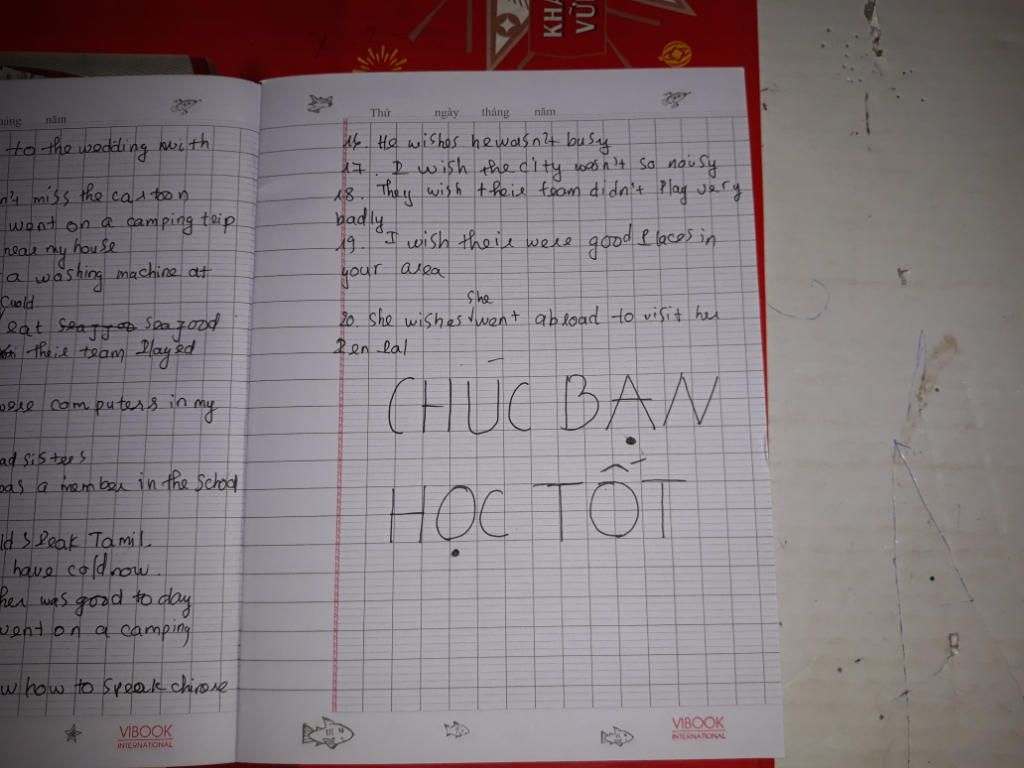 KHA
VỮ
háng năm
to the wedding with
n't miss the cartoon
went on a camping trip
near my house
a washing machine at
could
eat seafood
their team Played
were computers in my
ad sisters
was a member in the school
ld speak Tamil.
have cold now.
her was good to day
went on a camping
w how to speak chinese
VIBOOK
INTERNATIONAL
Thứ ngày tháng năm
16. He wishes he wasn't busy
17. I wish the city wasn't so noisy
18. They wish their team didn't Play very
badly
19. I wish their were good Places in
your area
20. She wishes she went abload to visit her
CHÚC BẠN
HỌC TỐT
VIBOOK
INTERNATIONAL